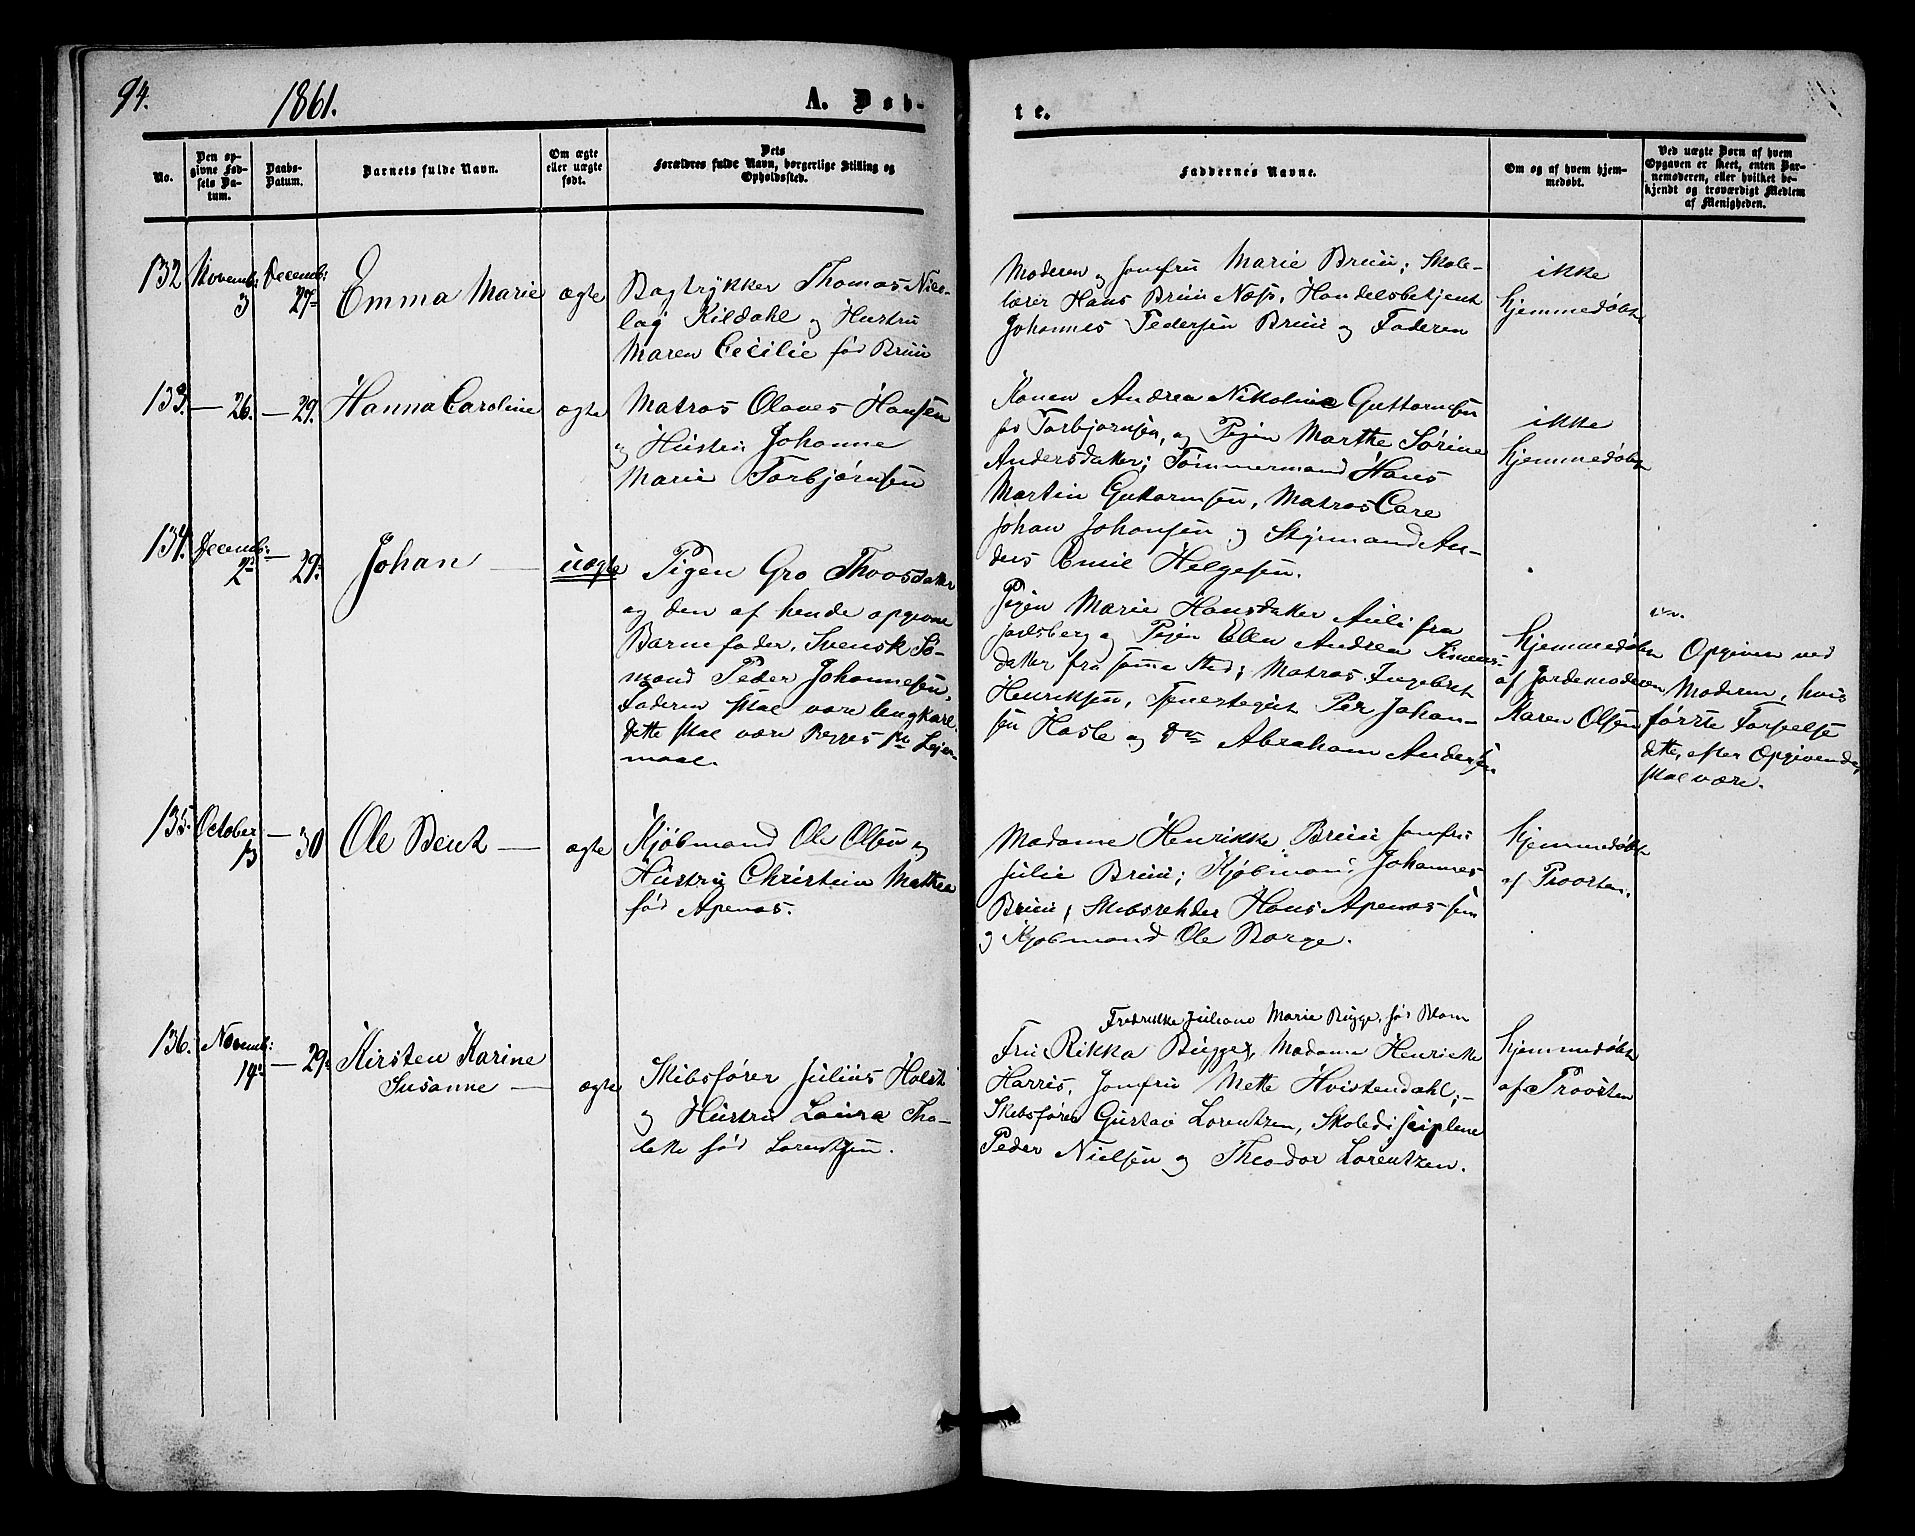 94.
1861.
A. Døb-
te.
No.
Den op-
givne Fød-
sels Da-
tum.
Daabs-
Datum.
Barnets fulde Navn.
Om ægte
eller uægte
født.
Dets
Forældres fulde Navn, borgerlige Stilling og
Opholdssted.
Faddernes Navne.
Om og af hvem hjem-
medøbt.
Ved uægte Børn af hvem
Opgaven er skeet, enten Bar-
nemoderen, eller hvilket be-
kjendt og troværdigt Medlem
af Menigheden.
132 Novemb: 3 Decemb: 27de Emma Marie ægte
Bogtrykker Thomas Nico-
laj Kildahl og Hustru
Maren Cecilie fød Bruu
Moderen og Jomfru Marie Bruu; Skole-
lærer Hans Bruu Næss, Handelsbetjent
Johannes Pedersen Bruu og Faderen
ikke
hjemmedøbt
133. — 26. — 29. Hanna Caroline ægte
Matros Olaves Hansen
og Hustru Johanne
Marie Torbjørnsen
Konen Andrea Nikoline Guttormsen
fød Torbjørnsen, og Pigen Marthe Sørine
Andersdatter; Tømmermand Hans
Martin Guttormsen, Matros Carl
Johan Johansen og Styrmand An-
ders Emil Helgesen.
ikke
hjemmedøbt
134. Decemb: 2de — 29. Johan — uægte
Pigen Gro Thoosdatter
og den af hende opgivne
Barnefader, Svensk Sø-
mand Peder Johannesen,
Faderen skal være Ungkarl,
dette skal være Begges 1ste Lejer-
maal.
Pigen Marie Hansdatter Auli fra
Jarlsberg og Pigen Ellen Andrea
datter fra samme Sted; Matros Ingebret
Henriksen, Tjenestegut Per Johan-
sen Hasle og do Abraham Andersen
hjemmedøbt
af Jordemoderen
Karen Olsen
Opgiven ved
Moderen, hvis
første Forseelse
dette, efter Opgivende,
skal være.
135. October 13 — 30 Ole Bent — ægte
Kjøbmand Ole Olsen og
Hustru Christine Mathea
fød Apenæs.
Madame Henrikke Bruu Jomfru
Julie Bruu; Kjøbmand Johannes
Bruu; Skibsreder Hans Apenæs sen
og Kjøbmand Ole Borge.
hjemmedøbt
af Provsten.
136. Novemb: 19de — 29. Kirsten Karine
Susanne — ægte
Skibsfører Julius Holst
og Hustru Laura Tho-
lette fød Lorentzen.
Fredrikke Juliane Marie Bugge, fød Blom
Fru Rikka Bugge, Madame Henrikke
Harris, Jomfru Mette Hvistendahl; —
Skibsfører Gustav Lorentzen, Skoledisciplene
Peder Nielsen og Theodor Lorentzen.
hjemmedøbt
af Provsten